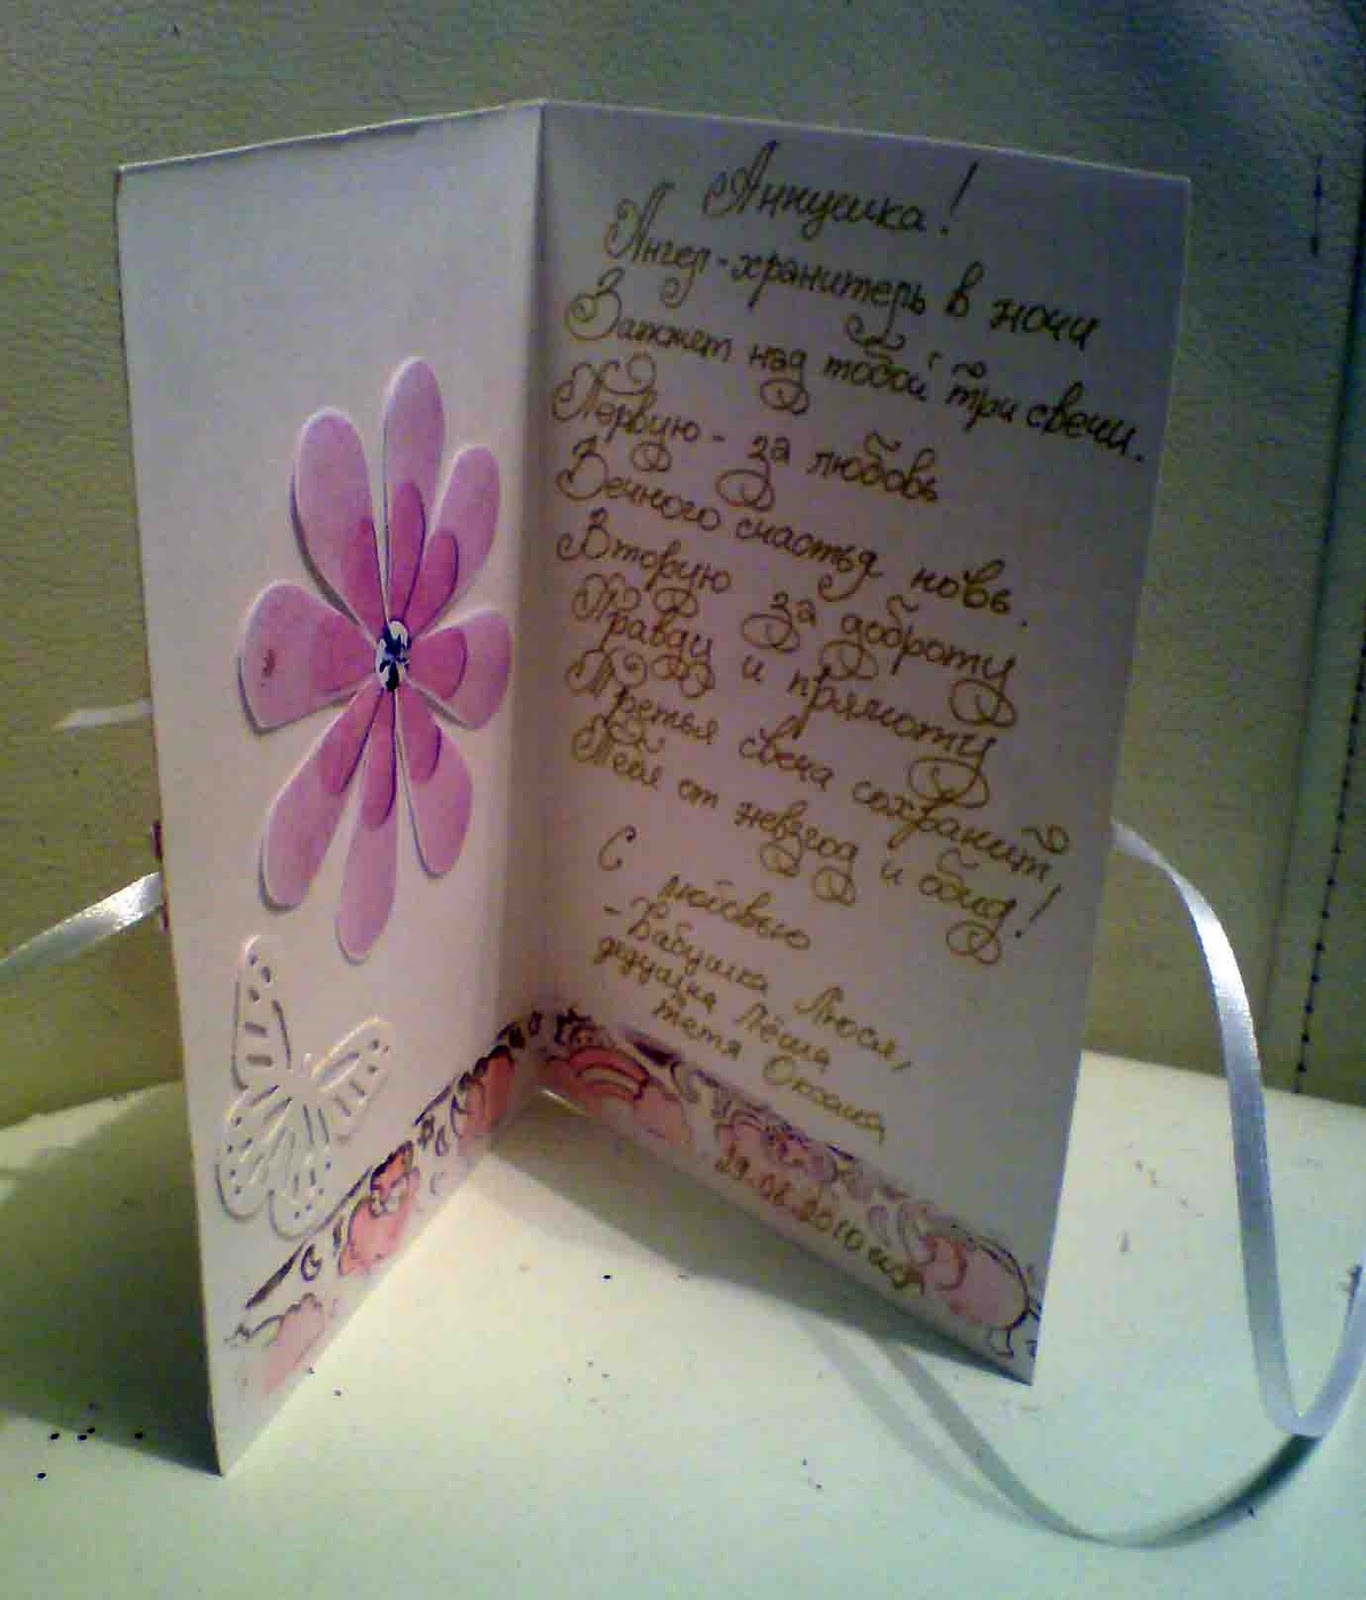 Аннушка!
Ангел-хранитель в ночи
Зажжет над тобой три свечи.
Первую - за любовь
Вечного счастья новь.
Вторую за доброту
Правду и прямоту
Третья свеча сохранит
Тебя от невзгод и обид!
С
любовью
- Бабушка Люся,
дедушка Лёша
тетя Оксана
29.08.2010 года